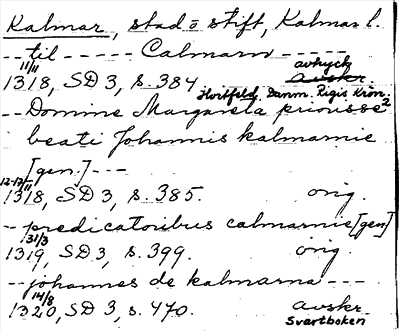 Kalmar, stad o stift, Kalmar l.
-- til - - - - - Calmarn - - - - -
11/11 avtryck
1318, SD 3, s. 384 avskr.
Hvitfeld, Danm. Rigis Krön. 2
-- Domine Margareta priorisse
beati Johannis kalmarnie
[gen.] - - -
12-17/11
1318, SD 3, s. 385. orig.
-- predicatoribus calmarnie [gen]
31/3
1319, SD 3, s. 399. orig.
-- johannes de kalmarna - - -
14/8
1320, SD 3, s. 470. avskr.
Svartboken